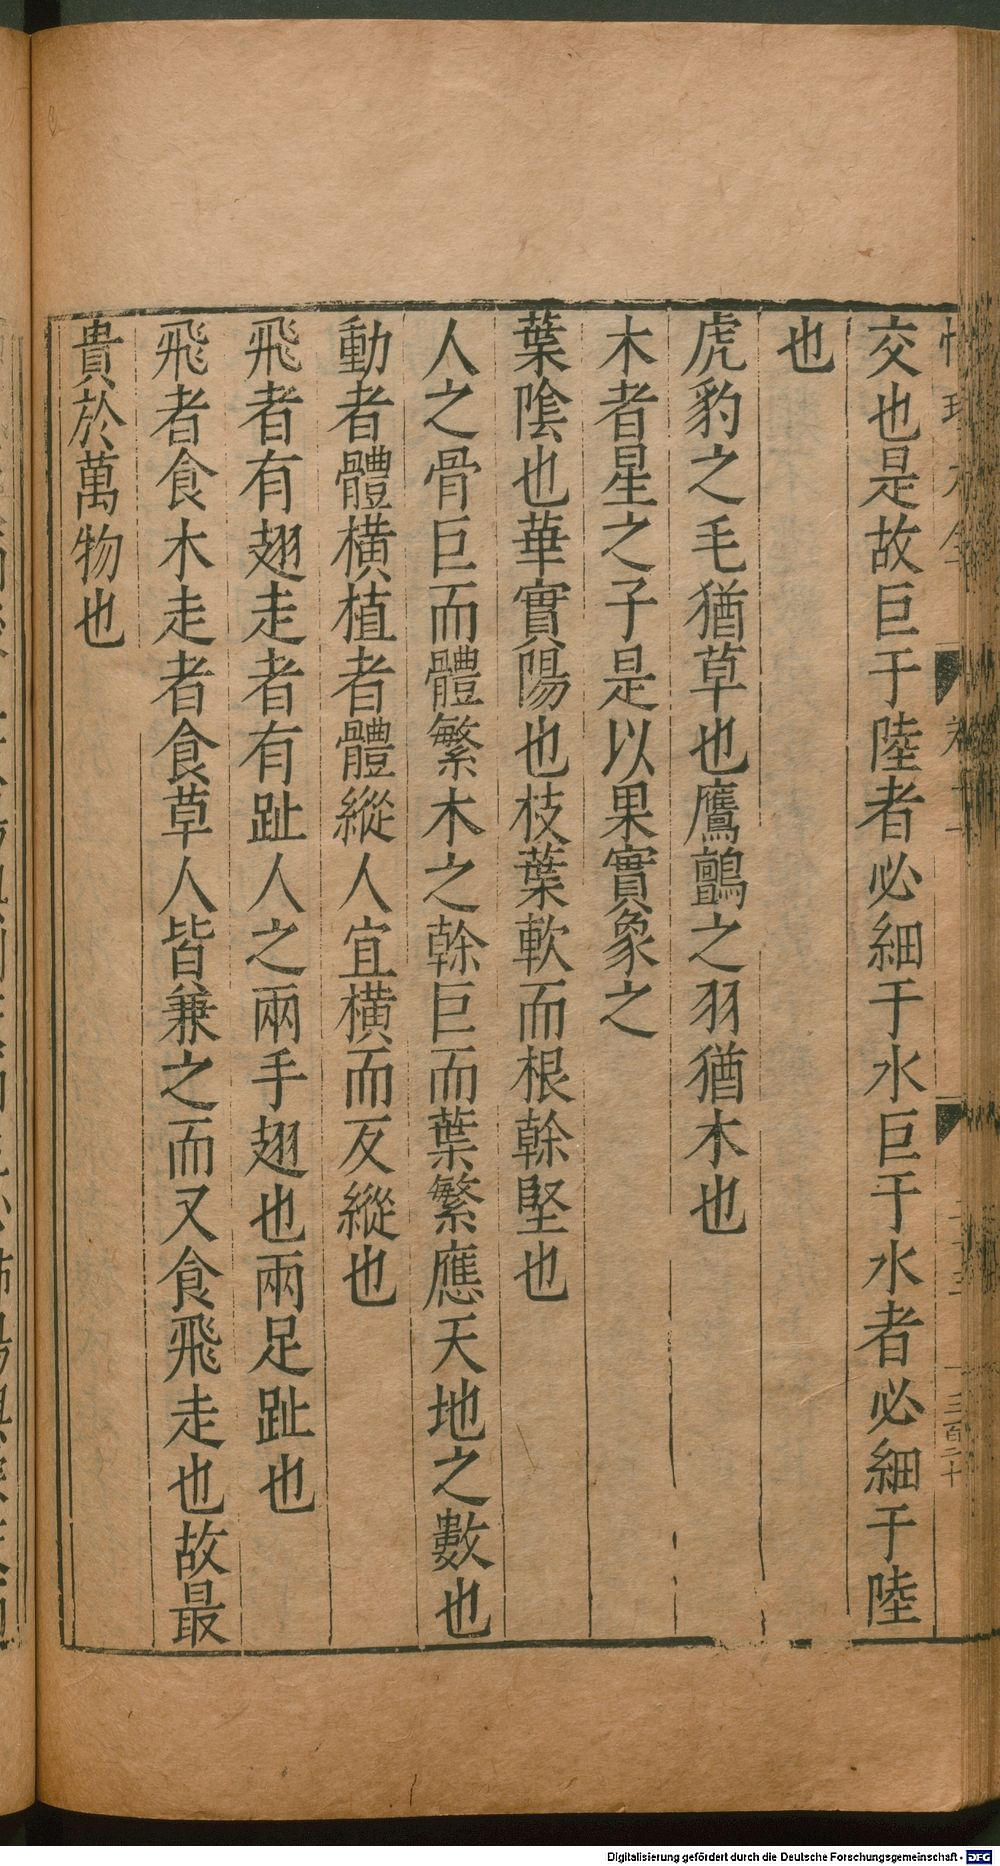 交也是故巨于陸者必細于水巨于水者必細于陸
也
虎豹之毛猶草也鷹鸇之羽猶木也
木者星之子是以果實象之
葉隂也華實陽也枝葉軟而根榦堅也
人之骨巨而體繁木之榦巨而葉繁應天地之數也
動者體橫植者體縱人宜橫而反縱也
飛者有翅走者有趾人之兩手翅也兩足趾也
飛者食木走者食草人皆兼之而又食飛走也故最
貴於萬物也
三百二十
Digitalisierung gefördert durch die Deutsche Forschungsgemeinschaft - DFG